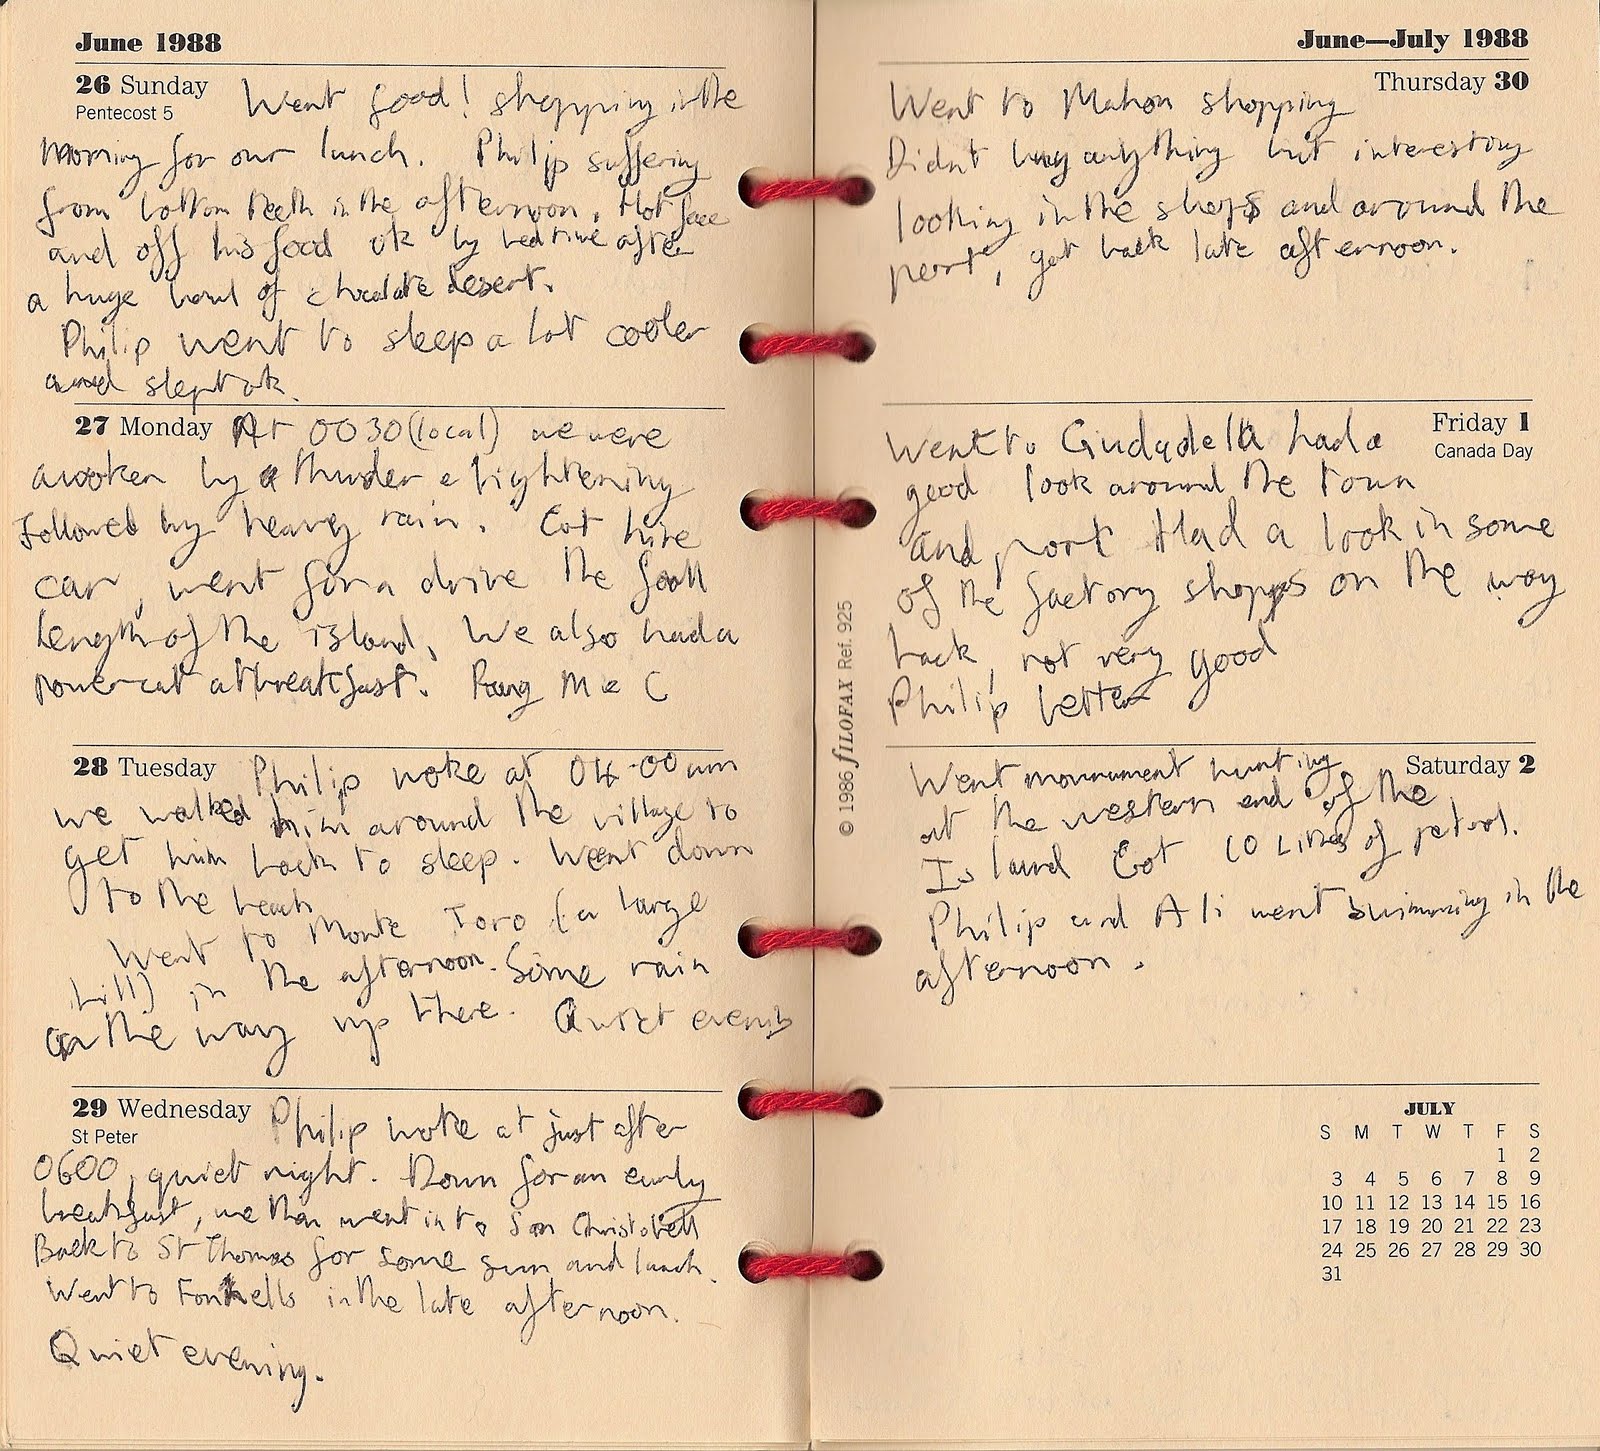 June 1988
26 Sunday
Pentecost 5
Went food! shopping in the
morning for our lunch. Philip suffering
from bottom teeth in the afternoon. Hot face
and off his food ok by bedtime after
a huge bowl of chocolate desert.
Philip went to sleep a lot cooler
and slept ok.
27 Monday
At 0030 (local) we were
awoken by a thunder e lightening
Followed by heavy rain. Got hire
car, went for a drive the full
length of the island. We also had a
powercut at breakfast. Rang M e C
28 Tuesday
Philip woke at 04.00am
we walked him around the village to
get him back to sleep. Went down
to the beach
Went to Monte Toro (a large
hill) in the afternoon. Some rain
on the way up there. Quiet evening
29 Wednesday
St Peter
Philip woke at just after
0600, quiet night. Down for an early
breakfast, we then went in to San Christobell
Back to St Thomas for some sun and lunch.
Went to Fornells in the late afternoon.
Quiet evening.
June—July 1988
Thursday 30
Went to Mahon shopping
Didnt buy anything but interesting
looking in the shops and around the
port, got back late afternoon.
Friday 1
Canada Day
Went to Ciudadella had a
good look around the town
and port Had a look in some
of the factory shopps on the way
back, not very good
Philip better
Saturday 2
Went monument hunting
at the western end of the
Island Got 10 Litres of petrol.
Philip and Ali went swimming in the
afternoon.
© 1986 FILOFAX Ref. 925
JULY
S M T W T F S
1 2
3 4 5 6 7 8 9
10 11 12 13 14 15 16
17 18 19 20 21 22 23
24 25 26 27 28 29 30
31